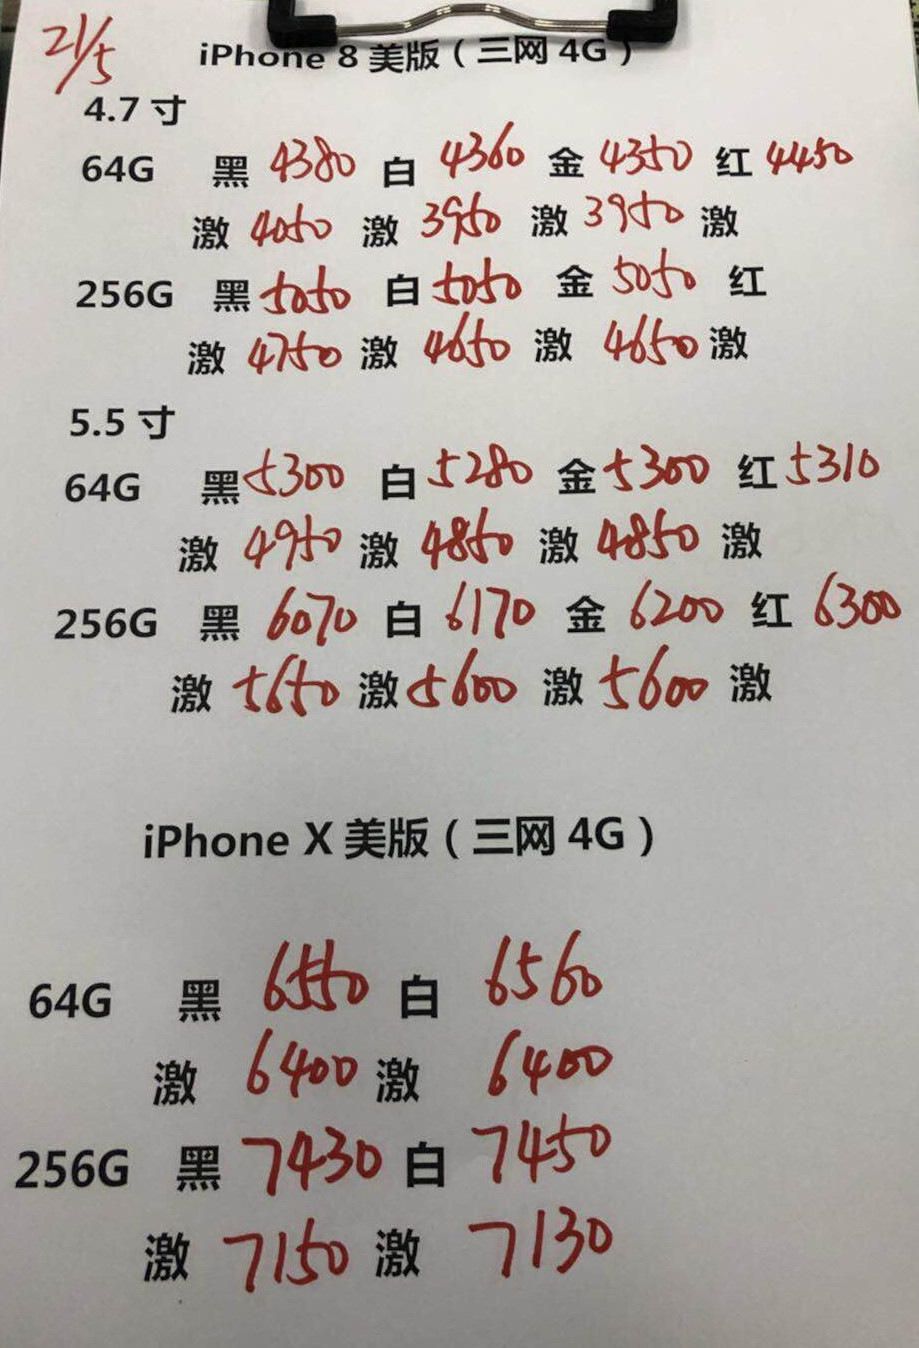 21/5
iPhone 8 美版（三网 4G）
4.7 寸
64G 黑 4380 白 4360 金 4350 红 4450
激 4050 激 3950 激 3950 激
256G 黑 5050 白 5050 金 5050 红
激 4750 激 4650 激 4650 激
5.5 寸
64G 黑 5300 白 5280 金 5300 红 5310
激 4950 激 4850 激 4850 激
256G 黑 6070 白 6170 金 6200 红 6300
激 5650 激 5600 激 5600 激
iPhone X 美版（三网 4G）
64G 黑 6550 白 6560
激 6400 激 6400
256G 黑 7430 白 7450
激 7150 激 7130